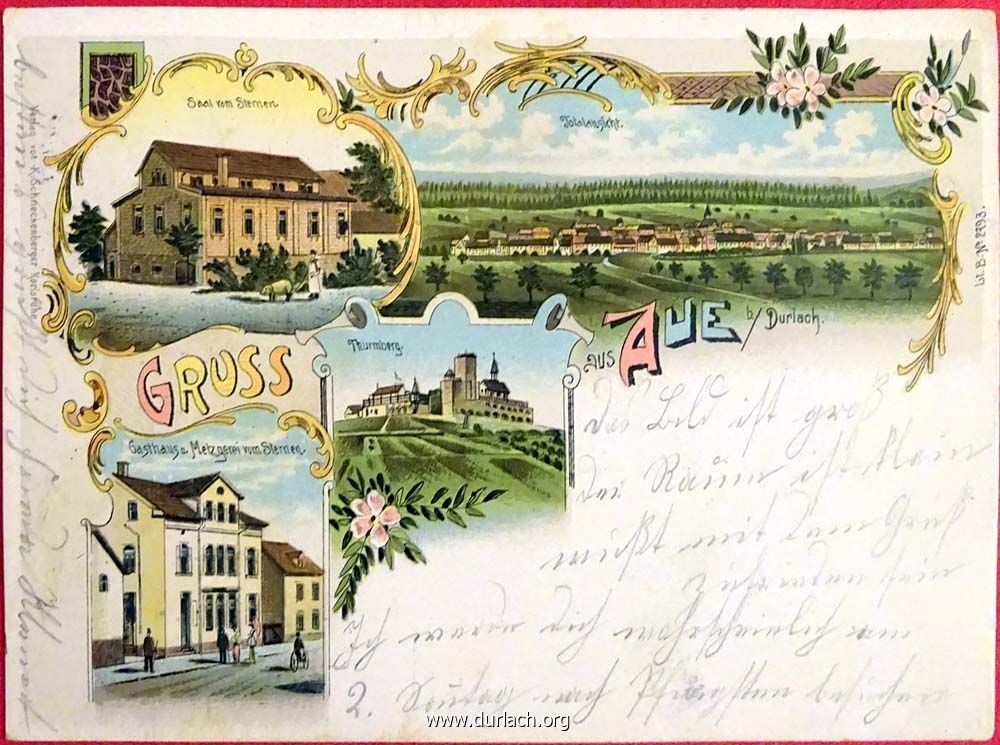 Saal vom Sternen.
Totalansicht.
GRUSS
aus AUE b/ Durlach.
Thurmberg.
Gasthaus u. Metzgerei vom Sternen.
Verlag von K. Schneckenberger Karlsruhe
Lit. B. No 2793.
das Bild ist groß
der Raum ist klein
mußt mit dem Gruß
zufrieden sein
Ich werde dich wahrscheinlich am
2. Sontag nach Pfingsten besuchen
www.durlach.org